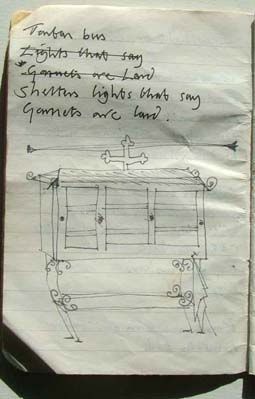 Tartan bus
Lights that say
* Gannets are Lard
Shelters lights that say
Gannets are lard.